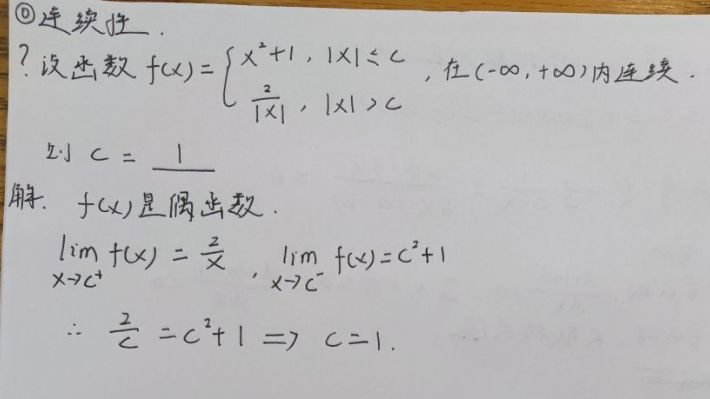 ⓪连续性.
? 设函数 f(x) = { x²+1, |x| ≤ c
2/|x|, |x| > c , 在(-∞, +∞)内连续.
则 c = 1
解. f(x)是偶函数.
lim x→c⁺ f(x) = 2/x , lim x→c⁻ f(x) = c²+1
∴ 2/c = c²+1 => c=1.